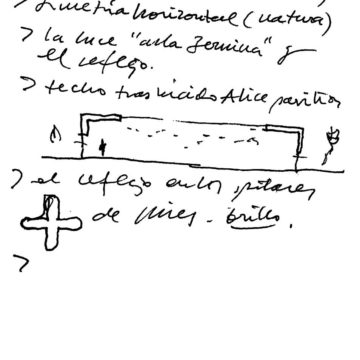 > Simetría horizontal (natura)
> la luce "arla Zemina" y
el reflejo.
> techo traslucido Alice pavillion
> el reflejo en los pilares
de Mies - brillo.
>